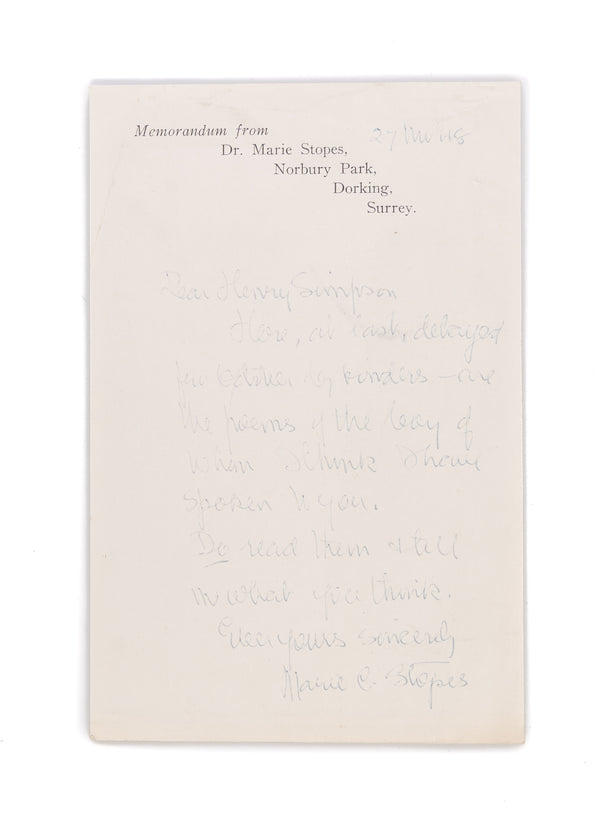 Memorandum from
Dr. Marie Stopes,
Norbury Park,
Dorking,
Surrey.
27 Nov 48
Dear Henry Simpson
Here, at last, delayed
October by binders – are
the poems of the boy of
whom I think I have
spoken to you.
Do read them & tell
me what you think.
Ever yours sincerely
Marie C. Stopes